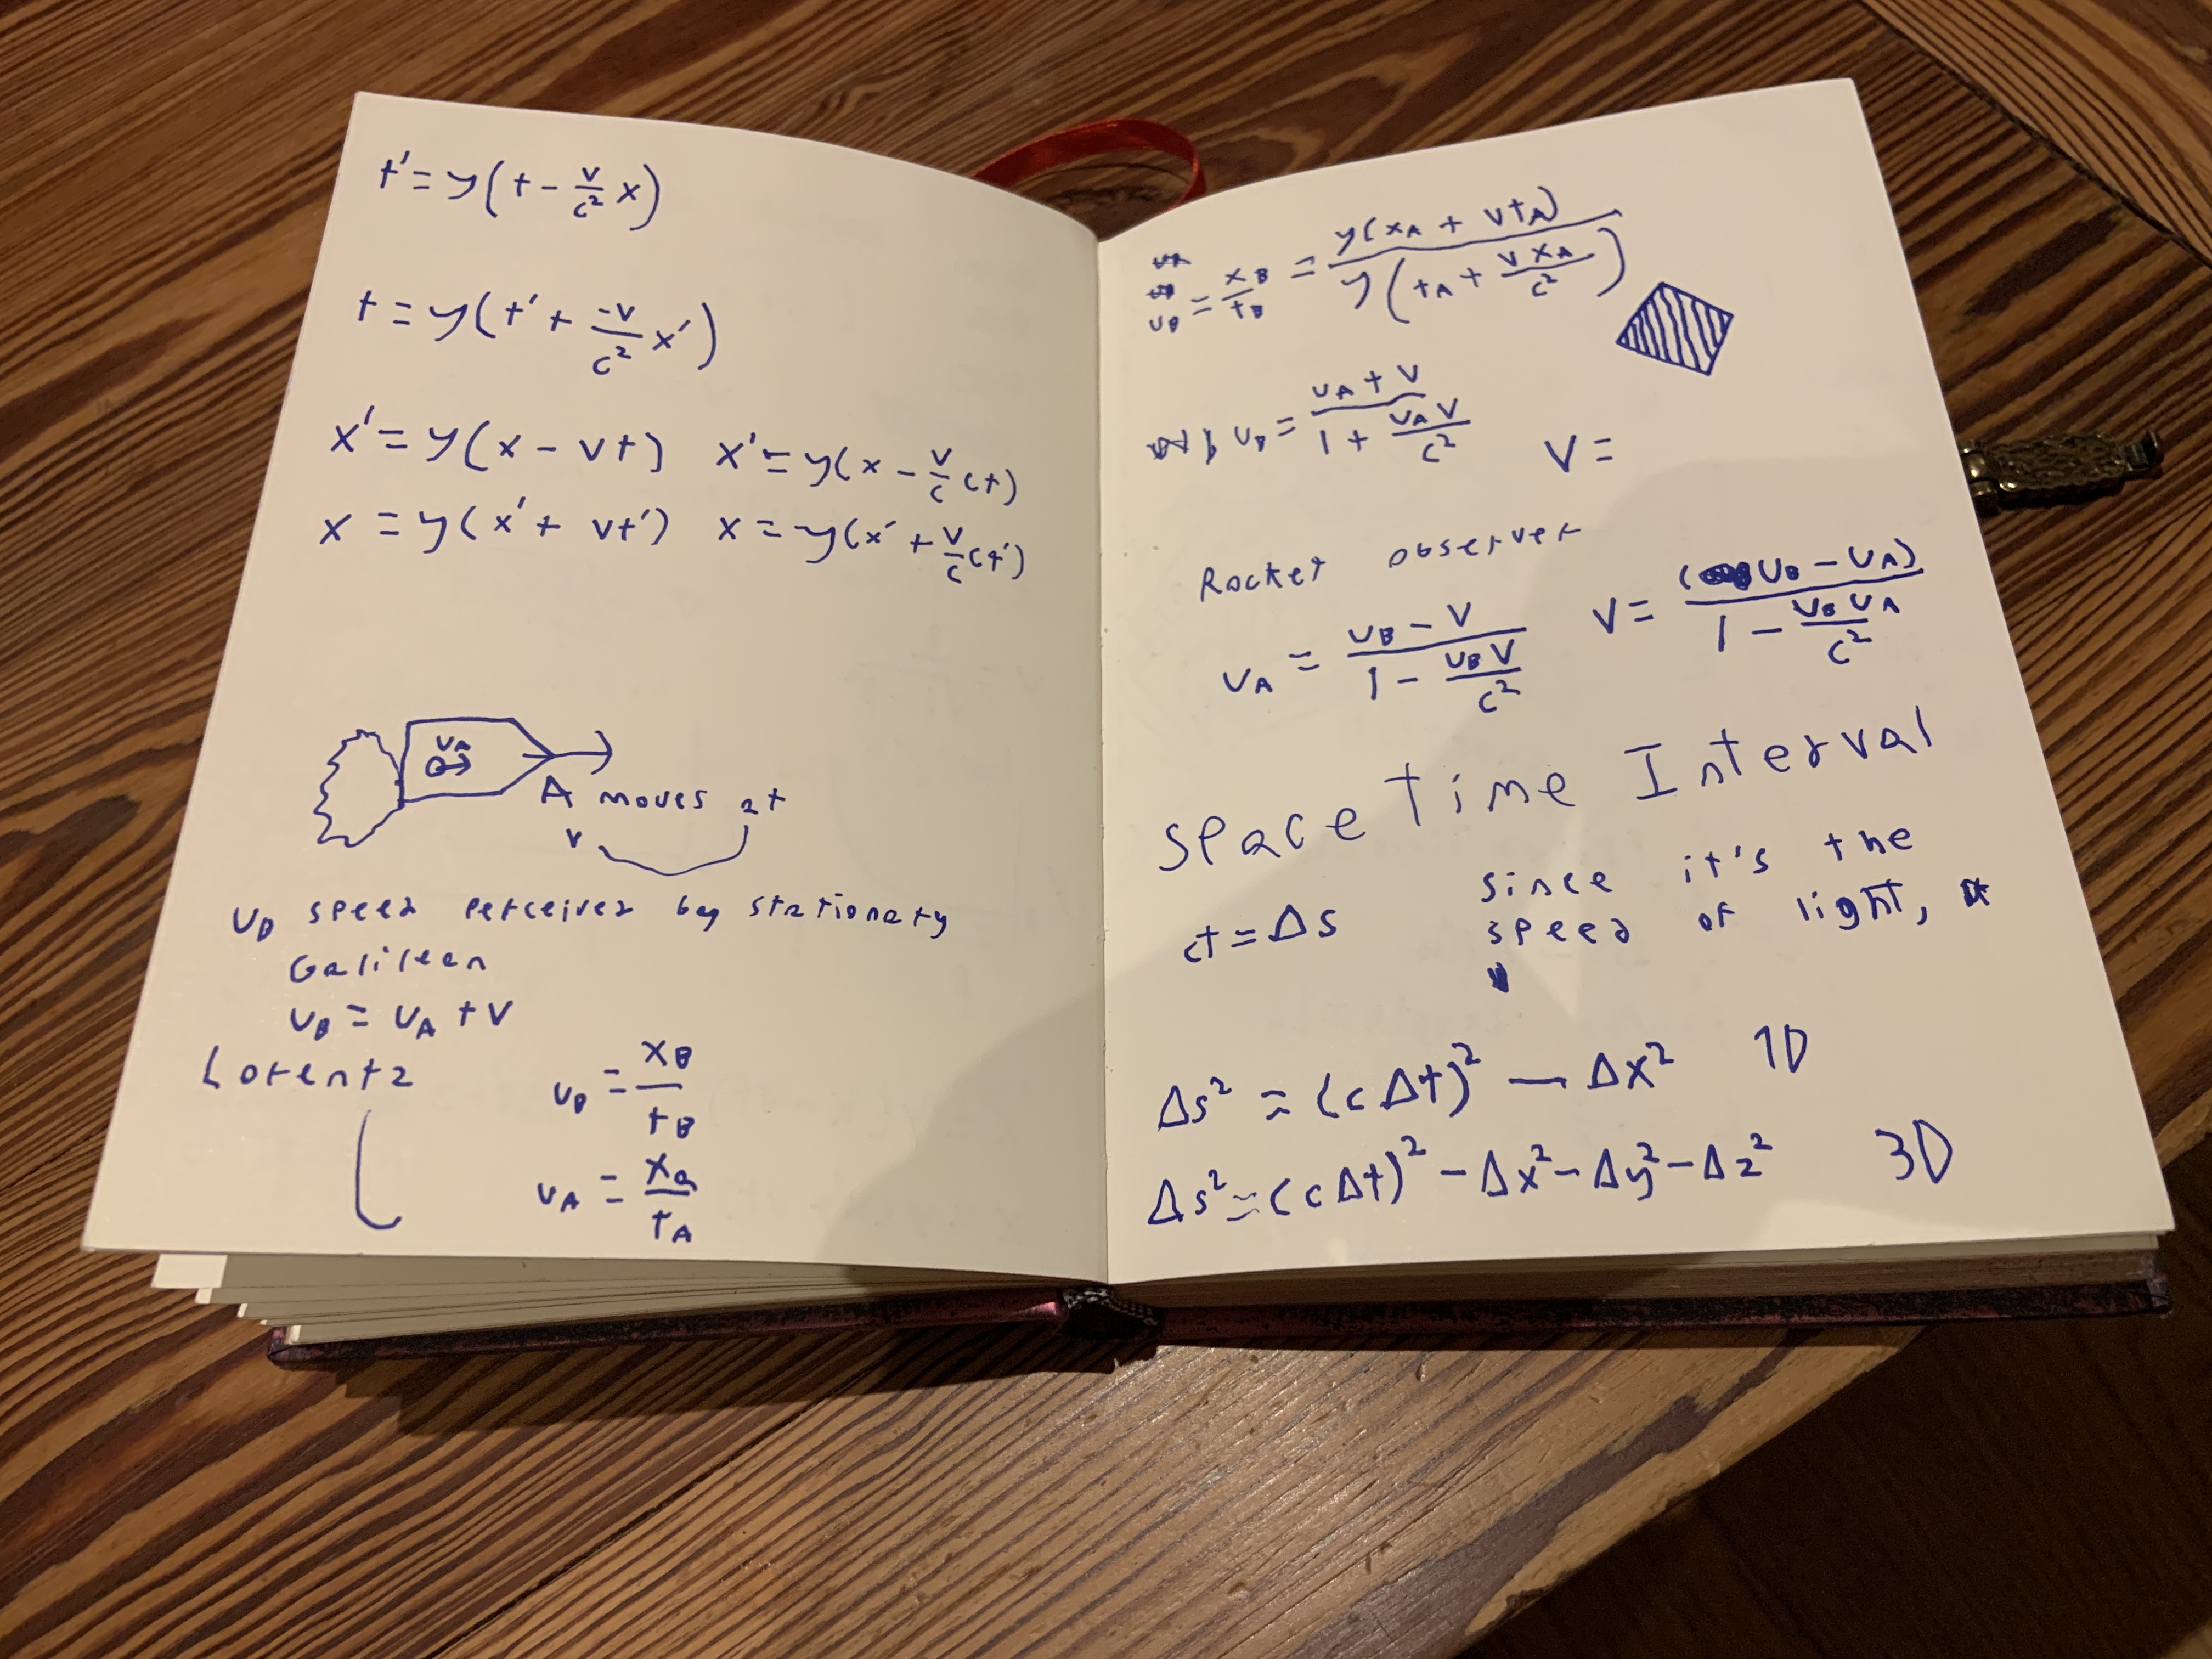 t' = γ(t - v/c² x)
t = γ(t' + v/c² x')
x' = γ(x - vt) x' = γ(x - v/c ct)
x = γ(x' + vt') x = γ(x' + v/c ct')
v_A
A moves at
v
v_B speed perceived by stationary
Galilean
v_B = v_A + v
Lorentz
v_B = x_B/t_B
v_A = x_A/t_A
v_B = x_B/t_B = γ(x_A + vt_A)/γ(t_A + vx_A/c²)
v_B = (v_A + v)/(1 + v_A v/c²) v =
Rocket observer
v_A = (v_B - v)/(1 - v_B v/c²) v = (v_B - v_A)/(1 - v_B v_A/c²)
Space Time Interval
ct = Δs since it's the
speed of light,
Δs² = (cΔt)² - Δx² 1D
Δs² = (cΔt)² - Δx² - Δy² - Δz² 3D